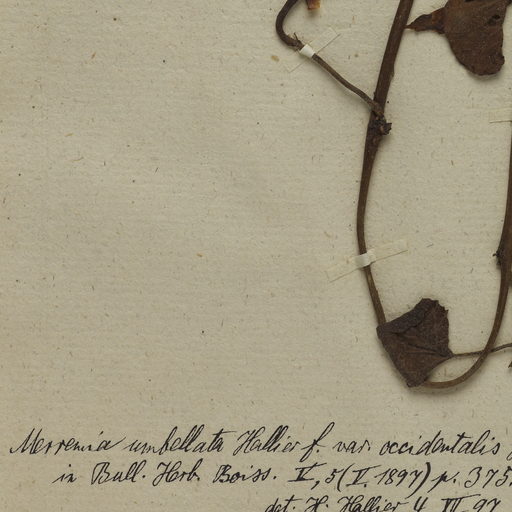 Merremia umbellata Hallier f. var. occidentalis
in Bull. Herb. Boiss. V, 5 (V. 1897) p. 375.
det. H. Hallier 4. VII. 97